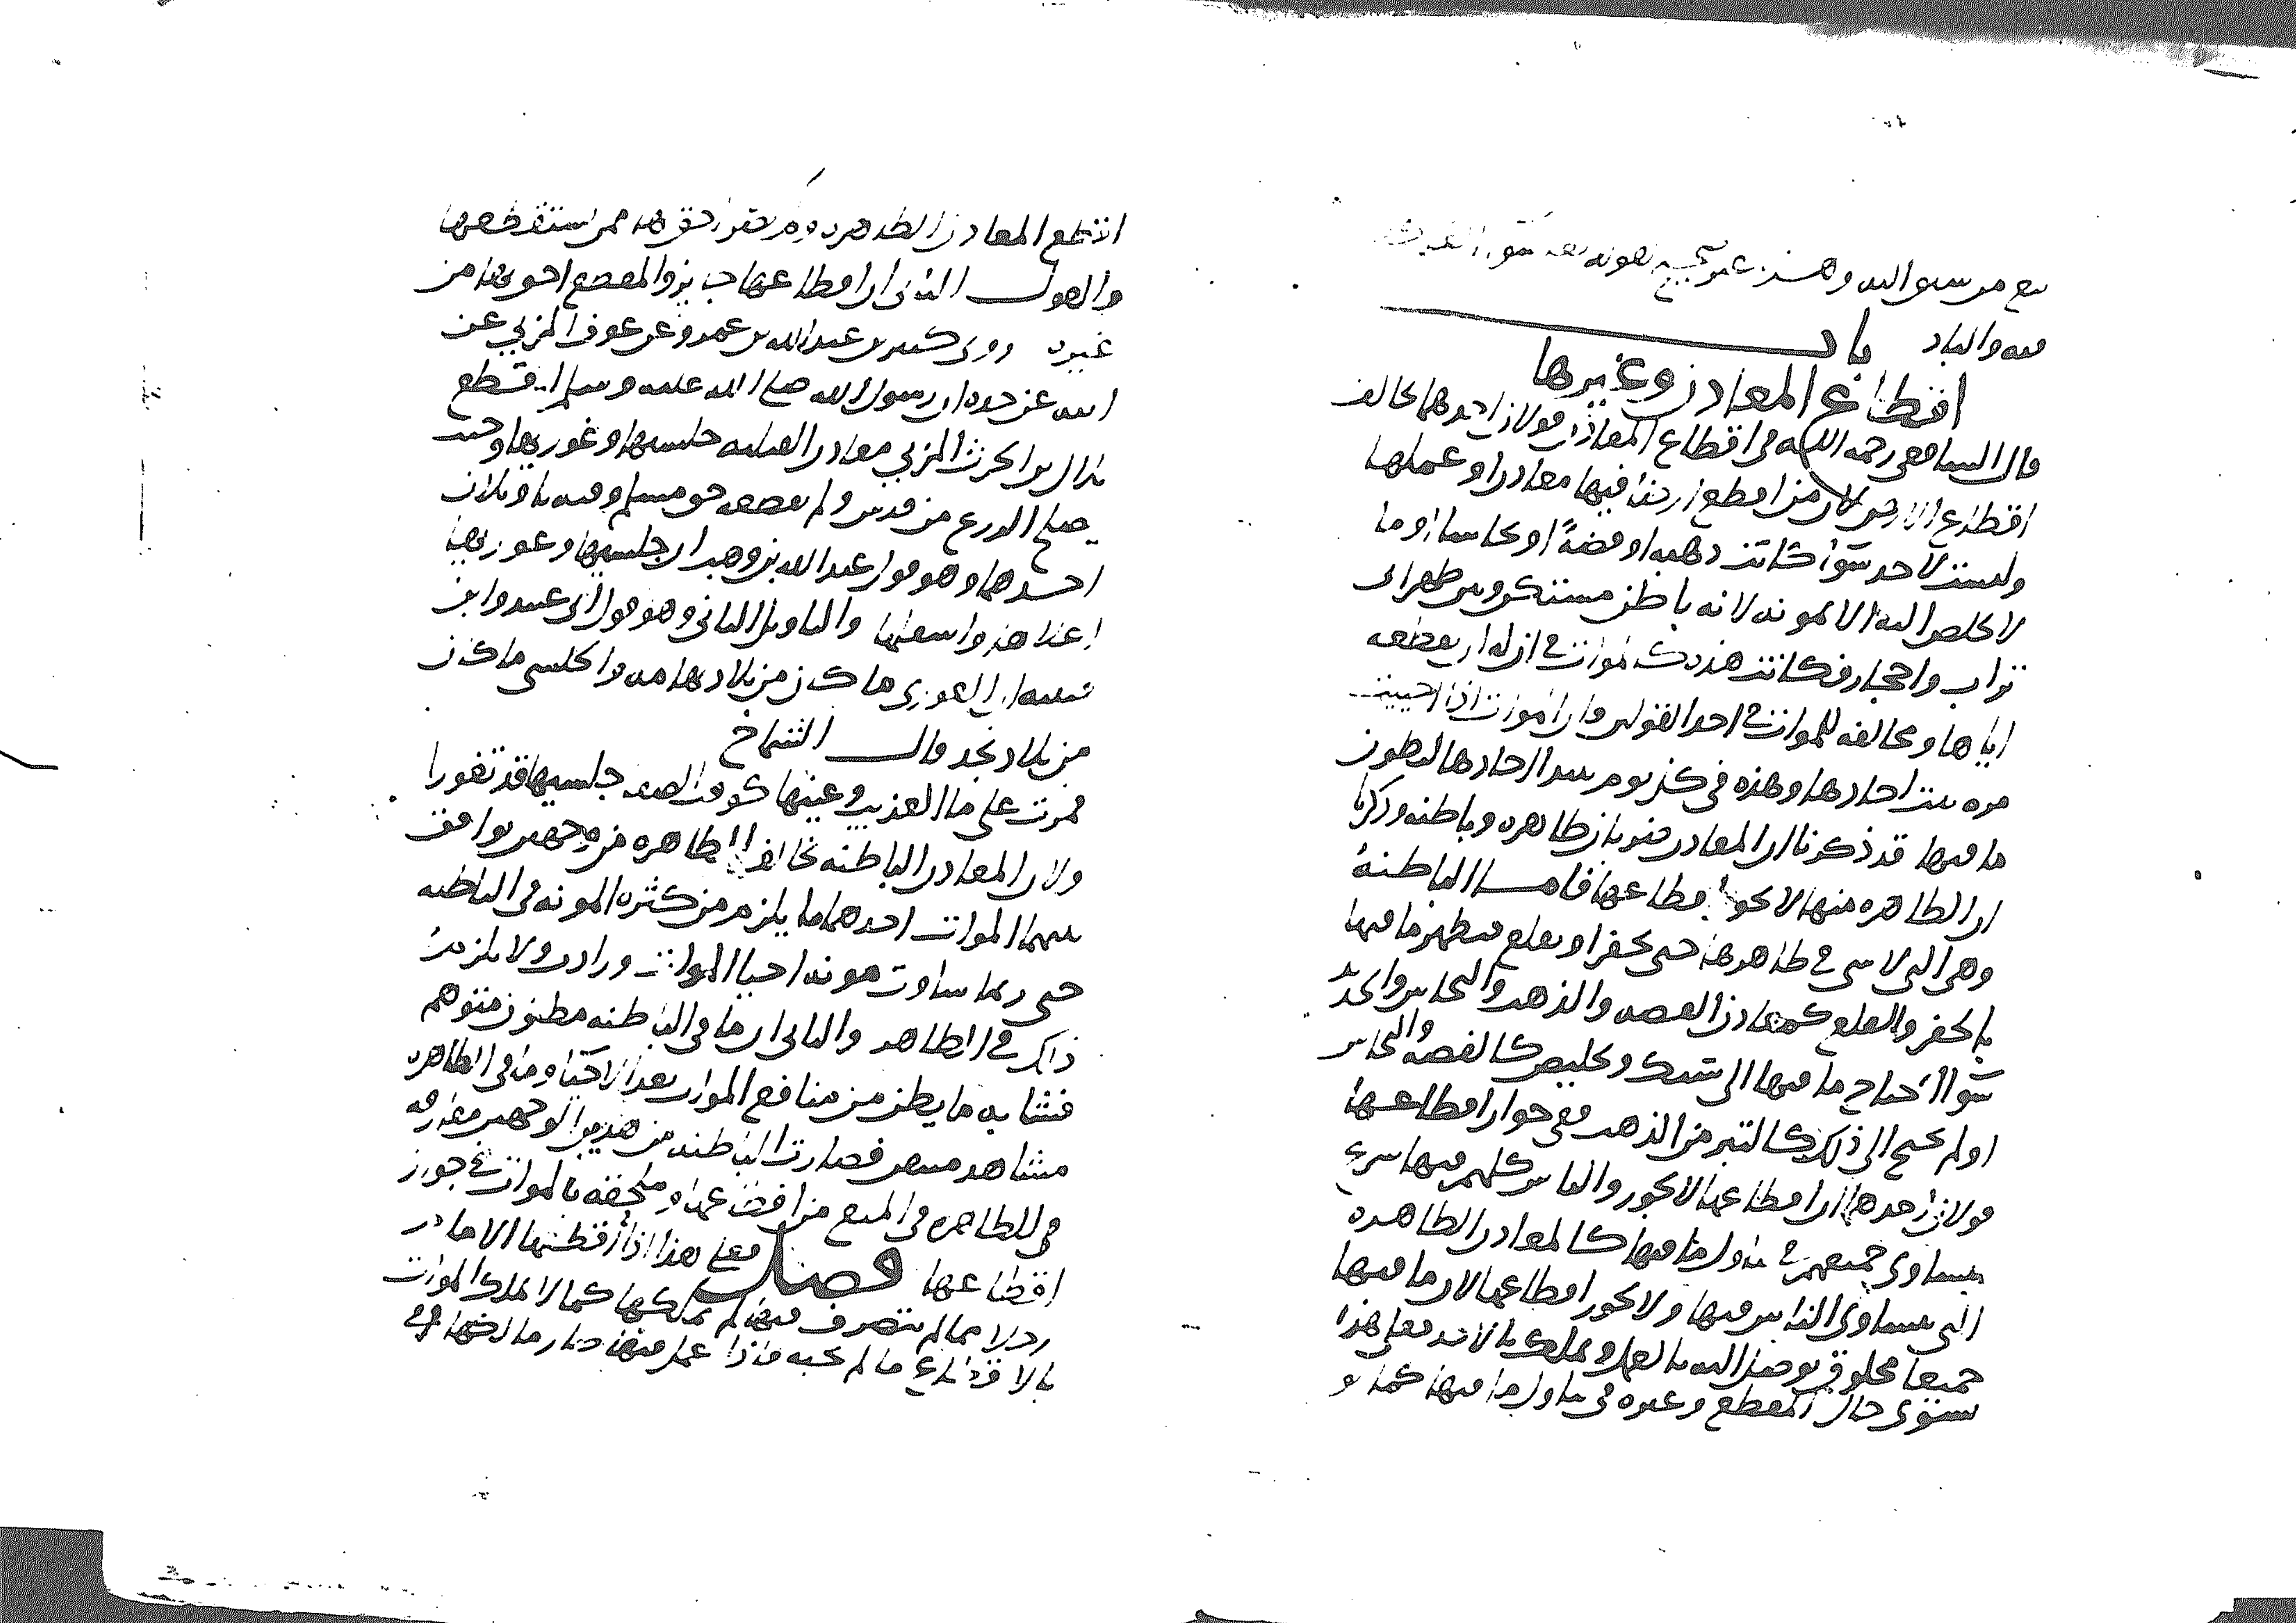 مع من سبق اليه وهذا غير صحيح لقوله
فيه والباد باب
اقطاع المعادن وغيرها
قال الشافعي رحمه الله في اقطاع المعادن قولان احدهما يخالف
اقطاع الارض لان من اقطع ارضا فيها معادن او عملها
وليست لاحد سوا كانت ذهبا او فضة او نحاسا او ما
لا يخلص اليه الا بمونه لانه باطن مستكن بين ظهراني
تراب واحجار فكانت هذه كالموات في ان له ان يقطعه
اياها ومخالفه للموات في احد القولين وان الموات اذا احييت
مره ثبت احياوها وهذه في كل يوم يبتدا احياوها لبطون
ما فيها قد ذكرنا ان المعادن ضربان ظاهره وباطنه وذكرنا
ان الظاهره منها لا يجوز اقطاعها فاما الباطنة
وهي التي لا شي في ظاهرها حتى يحفر او يقلع فيظهر ما فيها
بالحفر والقلع كمعادن الفضه والذهب والنحاس والحديد
سوا احتاج ما فيها الى سبك وتخليص كالفضه والنحاس
او لم يحتج الى ذلك كالتبر من الذهب ففي جواز اقطاعها
قولان احدهما ان اقطاعها لا يجوز والناس كلهم فيها شرع
يتساوى جميعهم في تناول ما فيها كالمعادن الظاهره
التي يتساوى الناس فيها ولا يجوز اقطاعها لان ما فيهما
جميعا مخلوق يوصل اليه بالعمل ويملك بالاخذ فعلى هذا
يستوي حال المقطع وغيره في تناول ما فيها كما لو
اقتطع المعادن الظاهره ممن استقطعها
والقول الثاني ان اقطاعها جايز والمقطع احق بها من
غيره روى كثير بن عبدالله بن عمرو بن عوف المزني عن
ابيه عن جده ان رسول الله صلى الله عليه وسلم اقطع
بلال بن الحرث المزني معادن القبليه جلسيها وغوريها وحيث
يصلح الزرع من قدس ولم يقطعه حق مسلم وفيه تاويلان
احدهما وهو قول عبد الله بن وهب ان جلسيها وغوريها
اعلاها واسفلها والتاويل الثاني وهو قول ابي عبيد وابن
قتيبه ان الغوري ما كان من بلاد تهامه والجلسي ما كان
من بلاد نجد وقال الشماخ
فمرت على ما العذيب وعينها كوقب الصفا جلسيها قد تغورا
ولان المعادن الباطنه تخالف الظاهره من وجهين يوافق
بينهما الموات احدهما ما يلزم من كثره المونه في الباطنه
حتى ربما ساوت مونه احيا الموات وزادت ولا يلزم
ذلك في الظاهر والثاني ان ما في الباطنه مظنون متوهم
فشابه ما يظن من منافع الموات بعد الاحيا وما في الظاهره
مشاهد متيقن فصارت الباطنه من هذين الوجهين مفارقه
للظاهره في المنع من اقطاعها وملحقه بالموات في جواز
اقطاعها فصل فعلى هذا اذا اقطعها الامام
رجلا فما لم يتصرف فيها لم يملكها كما لا يملك الموات
بالاقطاع ما لم يحيه فاذا عمل فيها صار مالكها في